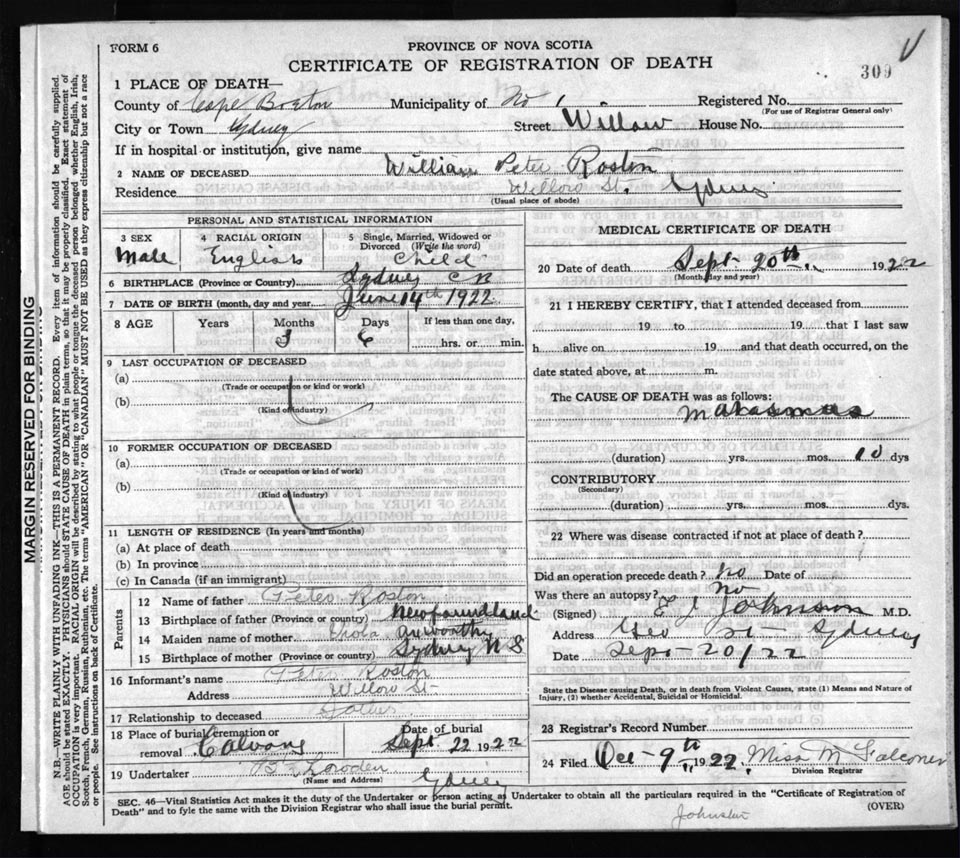 FORM 6
PROVINCE OF NOVA SCOTIA
CERTIFICATE OF REGISTRATION OF DEATH
309
1 PLACE OF DEATH—
County of Cape Breton Municipality of No 1 Registered No.
(For use of Registrar General only)
City or Town Sydney Street Willow House No.
If in hospital or institution, give name
2 NAME OF DECEASED William Peter Roston
Residence Willow St. Sydney
(Usual place of abode)
PERSONAL AND STATISTICAL INFORMATION
3 SEX 4 RACIAL ORIGIN 5 Single, Married, Widowed or Divorced (Write the word)
Male English Child
6 BIRTHPLACE (Province or Country) Sydney C B
7 DATE OF BIRTH (month, day and year) June 14th 1922
8 AGE Years Months Days If less than one day,
3 6 hrs. or min.
9 LAST OCCUPATION OF DECEASED
(a)
(Trade or occupation or kind of work)
(b)
(Kind of industry)
10 FORMER OCCUPATION OF DECEASED
(a)
(Trade or occupation or kind of work)
(b)
(Kind of industry)
11 LENGTH OF RESIDENCE (In years and months)
(a) At place of death
(b) In province
(c) In Canada (if an immigrant)
Parents
12 Name of father Peter Roston
13 Birthplace of father (Province or country) Newfoundland
14 Maiden name of mother Viola
15 Birthplace of mother (Province or country) Sydney N S
16 Informant's name Peter Roston
Address Willow St
17 Relationship to deceased Father
18 Place of burial, cremation or removal Calvary Date of burial Sept 22 1922
19 Undertaker Sydney
(Name and Address)
MEDICAL CERTIFICATE OF DEATH
20 Date of death Sept 20th 1922
(Month, day and year)
21 I HEREBY CERTIFY, that I attended deceased from
19 to 19 that I last saw
h alive on 19 and that death occurred, on the
date stated above, at m.
The CAUSE OF DEATH was as follows:
Marasmus
(duration) yrs. mos. 10 dys
CONTRIBUTORY
(Secondary)
(duration) yrs. mos. dys.
22 Where was disease contracted if not at place of death?
Did an operation precede death? no Date of
Was there an autopsy? no
(Signed) Johnson M.D.
Address Geo St Sydney
Date Sept 20/22
State the Disease causing Death, or in death from Violent Causes, state (1) Means and Nature of Injury, (2) whether Accidental, Suicidal or Homicidal.
23 Registrar's Record Number
24 Filed Oct 9th 1922 Miss M Falconer
Division Registrar
SEC. 46—Vital Statistics Act makes it the duty of the Undertaker or person acting as Undertaker to obtain all the particulars required in the "Certificate of Registration of
Death" and to fyle the same with the Division Registrar who shall issue the burial permit. (OVER)
MARGIN RESERVED FOR BINDING
N.B.—WRITE PLAINLY WITH UNFADING INK—THIS IS A PERMANENT RECORD. Every item of information should be carefully supplied.
AGE should be stated EXACTLY. PHYSICIANS should STATE CAUSE OF DEATH in plain terms, so that it may be properly classified. Exact statement of
OCCUPATION is very important. RACIAL ORIGIN will be described by stating to what people or tongue the deceased person belonged whether English, Irish,
Scotch, French, German, Russian, Ruthenian, etc. The terms "AMERICAN" or "CANADIAN" MUST NOT BE USED as they express citizenship but not a race
or people. See instructions on back of Certificate.